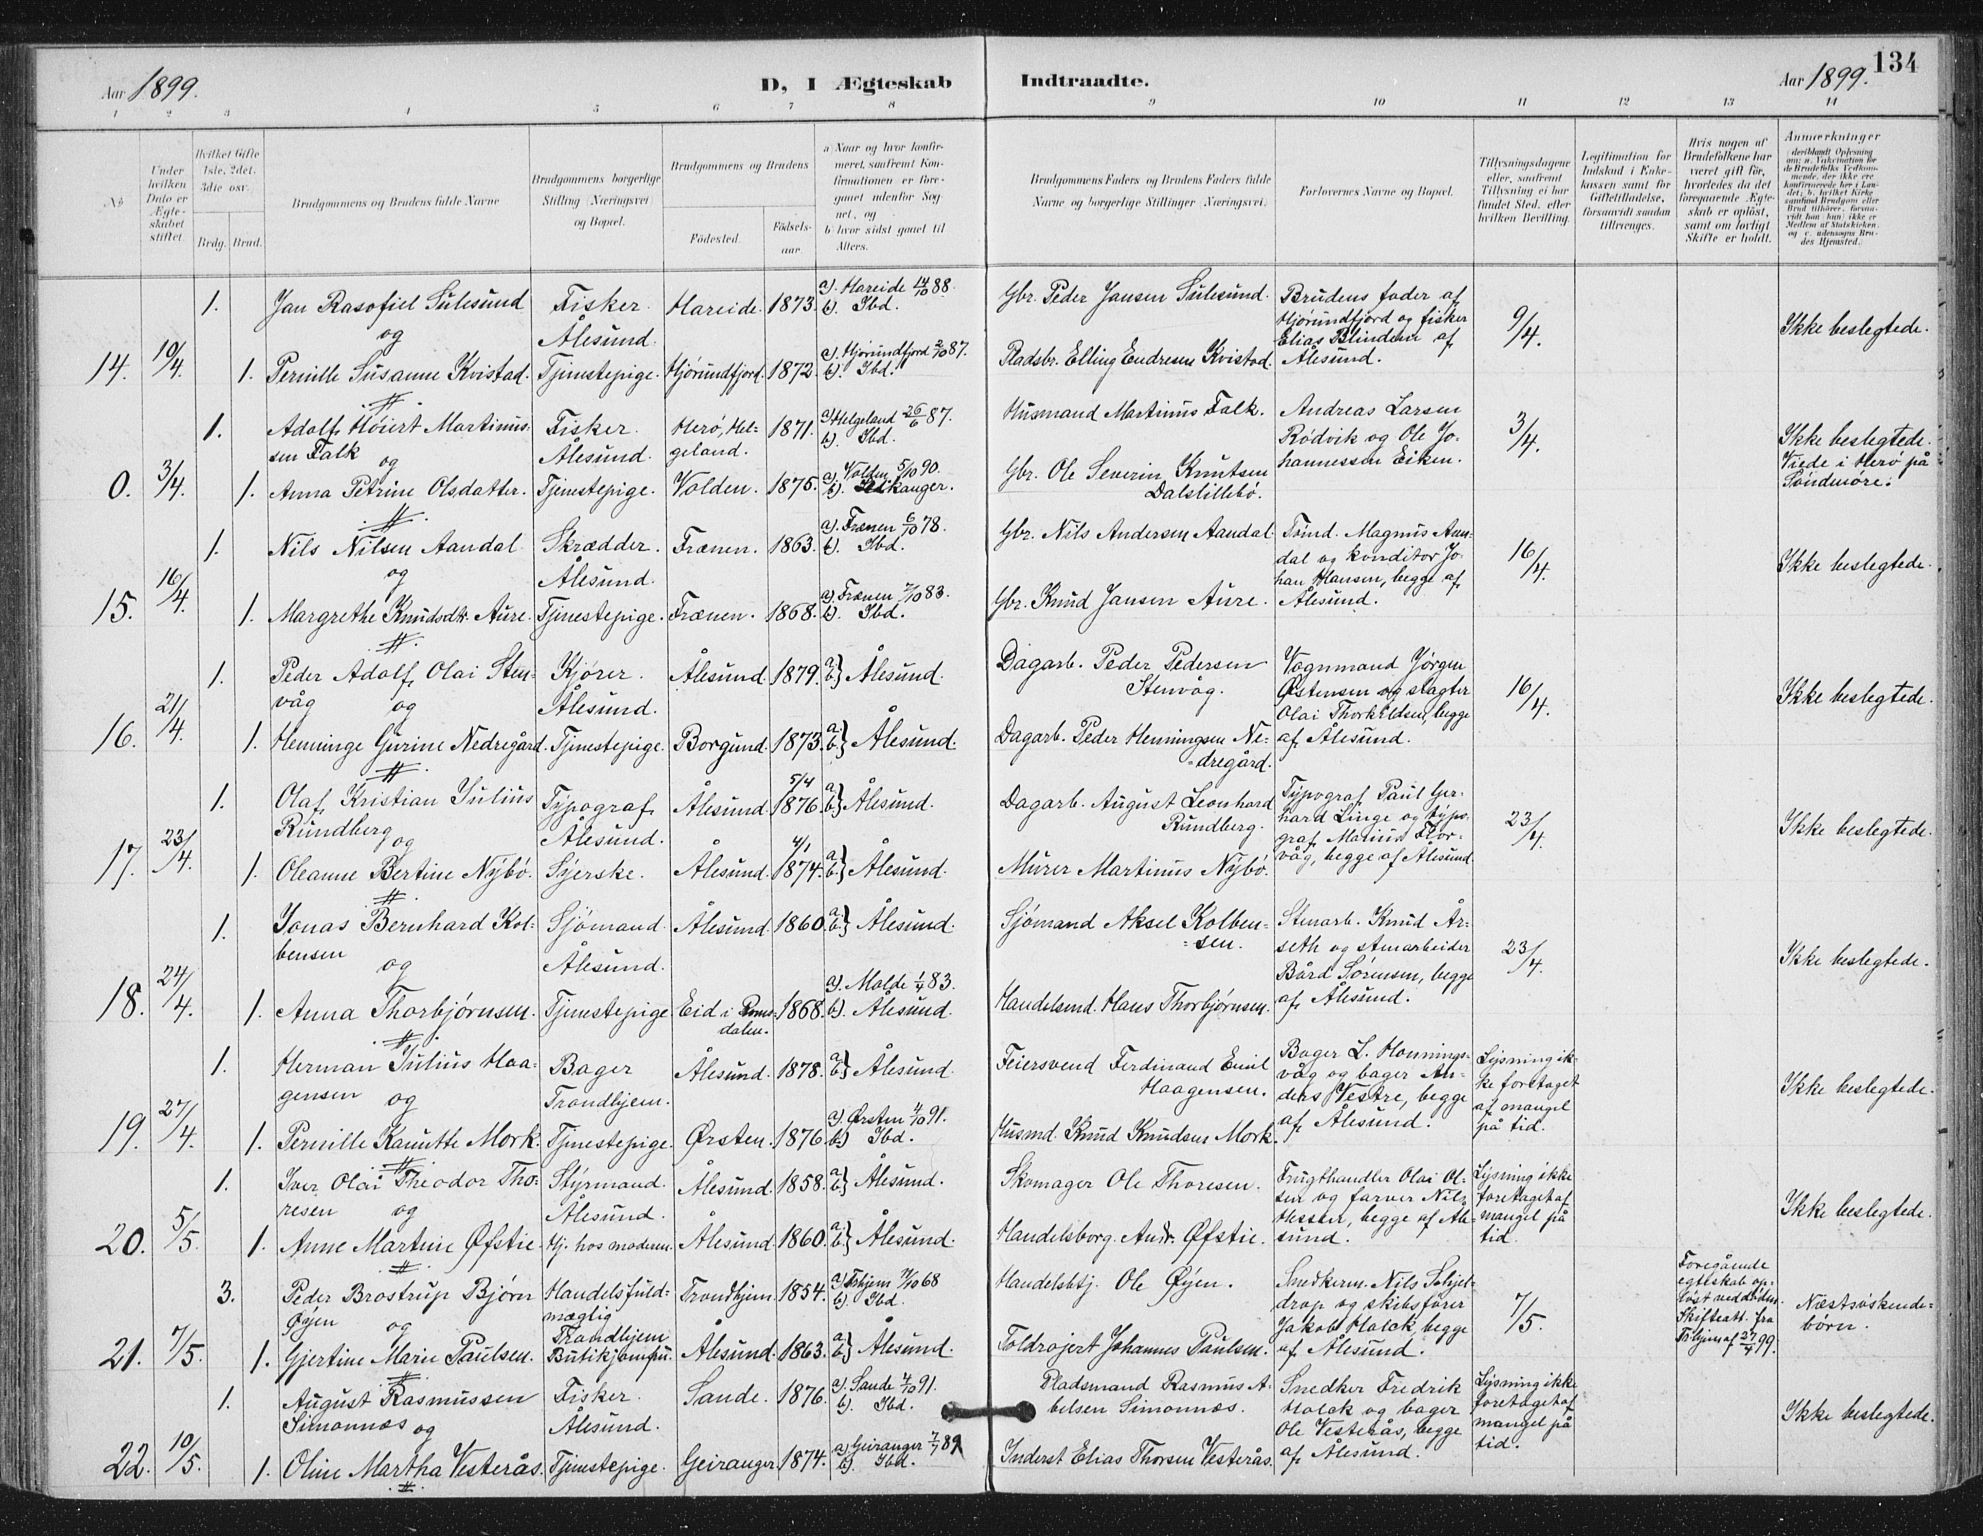 Aar 1899.
D, I Ægteskab
Indtraadte.
Aar 1899.
134
1 2 3 4 5 6 7 8 9 10 11 12 13 14
No
Under hvilken Dato er Ægteskabet stiftet.
Hvilket Gifte 1ste, 2det, 3die osv.
Brdg. Brud.
Brudgommens og Brudens fulde Navne
Brudgommens borgerlige Stilling (Næringsvei) og Bopæl.
Brudgommens og Brudens
Fødested.
Fødselsaar.
a Naar og hvor konfirmeret, saafremt Konfirmationen er foregaaet udenfor Sognet, og
b hvor sidst gaaet til Alters.
Brudgommens Faders og Brudens Faders fulde Navne og borgerlige Stillinger (Næringsvei).
Forlovernes Navne og Bopæl.
Tillysningsdagene eller, saafremt Tillysning ei har fundet Sted, efter hvilken Bevilling.
Legitimation for Indskud i Enkekassen samt for Giftetilladelse, forsaavidt saadan tiltrænges.
Hvis nogen af Brudefolkene har været gift før, hvorledes da det foregaaende Ægteskab er opløst, samt om lovligt Skifte er holdt.
Anmærkninger
14. 10/4
1. Jan Rasofiel Sulesund Fisker. Ålesund. Hareide. 1873. a). Hareide 14/10 88. b). Ibd. Gbr. Peder Jansen Sulesund. Brudens fader af Hjørundfjord og fisker Elias Blindem af Ålesund. 9/4. Ikke beslegtede.
og
1. Pernille Susanne Kvistad. Tjenestepige. Hjørundfjord. 1872. a). Hjørundfjord 2/10 87. b). Ibd. Pladsbr. Elling Endresen Kvistad.
0. 3/4
1. Adolf Höiert Martinussen Falk Fisker. Ålesund. Herø, Helgeland. 1871. a) Helgeland 26/6 87. b). Ibd. Husmand Martinus Falk. Andreas Larsen Rödvik og Ole Johannessen Eiken. 3/4. Ikke beslegtede. Viede i Herø på Söndmöre.
og
1. Anna Petrine Olsdatter. Tjenestepige. Volden. 1875. a). Volden 5/10 90. b). kanger. Gbr. Ole Severin Knutsen Dalslillebö.
15. 16/4
1. Nils Nilsen Aandal Skrædder. Ålesund. Frænen. 1863. a). Frænen 6/10 78. b). Ibd. Gbr. Nils Andersen Aandal Tömd. Magnus Aandal og konditor Johan Hansen, begge af Ålesund. 16/4. Ikke beslegtede.
og
1. Margrethe Knudsdtr. Aure. Tjenestepige. Frænen. 1868. a). Frænen 7/10 83. b). Ibd. Gbr. Knud Jansen Aure.
16. 21/4
1. Peder Adolf Olai Stenvåg Kjører. Ålesund. Ålesund. 1879. a) b) Ålesund. Dagarb. Peder Pedersen Stenvåg. Vognmand Jørgen Østensen og slagter Olai Thorkildsen, begge af Ålesund. 16/4. Ikke beslegtede.
og
1. Henninge Gurine Nedregård. Tjenestepige. Borgund. 1873. a) b) Ålesund. Dagarb. Peder Henningsen Nedregård.
17. 23/4
1. Olaf Kristian Julius Rundberg Typograf, Ålesund. Ålesund. 5/4 1876. a) b) Ålesund. Dagarb. August Leonhard Rundberg. Typograf Paul Gerhard Linge og typograf Marius Florvåg, begge af Ålesund. 23/4. Ikke beslegtede.
og
1. Oleanne Bertine Nybø. Syerske. Ålesund. 4/1 1874. a) b) Ålesund. Murer Martinus Nybø.
18. 24/4
1. Jonas Bernhard Kolbensen Sjømand. Ålesund. Ålesund. 1860. a) b) Ålesund. Sjømand Aksel Kolbensen. Stenarb. Knud Årseth og stenarbeider Bård Sørensen, begge af Ålesund. 23/4. Ikke beslegtede.
og
1. Anna Thorbjørnsen. Tjenestepige Eid i Romsdalen. 1868. a). Molde 1/4 83. b). Ålesund. Handelsmd. Hans Thorbjørnsen.
19. 27/4
1. Herman Julius Haagensen Bager Trondhjem. Ålesund. 1878. a) b) Ålesund. Feiersvend Ferdinand Emil Haagensen. Bager L. Honningsvåg og bager Anders Vestre, begge af Ålesund. Lysning ikke foretaget af mangel på tid. Ikke beslegtede.
og
1. Pernille Kanutte Mork. Tjenestepige. Ørsten. 1876. a). Ørsten 4/10 91. b). Ibd. Husmd. Knud Knudsen Mork.
20. 5/5
1. Iver Olai Theodor Thoresen Styrmand. Ålesund. Ålesund. 1858. a) b) Ålesund. Skomager Ole Thoresen. Frugthandler Olai Olsen og farver Nils Hessen, begge af Ålesund. Lysning ikke foretaget af mangel på tid. Ikke beslegtede.
og
1. Anne Martine Øfstie. Hj. hos moderen. Ålesund. 1860. a) b) Ålesund. Handelsborg. Andr. Øfstie.
21. 7/5
3. Peder Brostrup Bjørn Øyen Handelsfuldmægtig Trondhjem Trondhjem. 1854. a) Trhjem 11/10 68 b). Ibd. Handelsbtj. Ole Øyen. Snedkerm. Nils Schjeldrop og skibsfører Jakob Holck begge af Ålesund. 7/5. Foregående egteskab opløst ved døden. Skifteatt. fra Trhjem af 27/4 99. Næstsøskendebörn.
og
1. Gjertine Marie Paulsen. Butikjomfru. Ålesund. 1863. a) b) Ålesund. Toldrojert Johannes Paulsen.
22. 10/5
1. August Rasmussen Simonnæs Fisker. Ålesund. Sande. 1876. a). Sande 4/10 91. b). Ibd. Pladsmand Rasmus Abelsen Simonnæs. Snedker Fredrik Holck og bager Ole Vesterås, begge af Ålesund. Lysning ikke foretaget af mangel på tid. Ikke beslegtede.
og
1. Oline Martha Vesterås. Tjenestepige. Geiranger. 1874. a) Geiranger 7/7 89 b). Ibd. Inderst Elias Thorsen Vesterås.